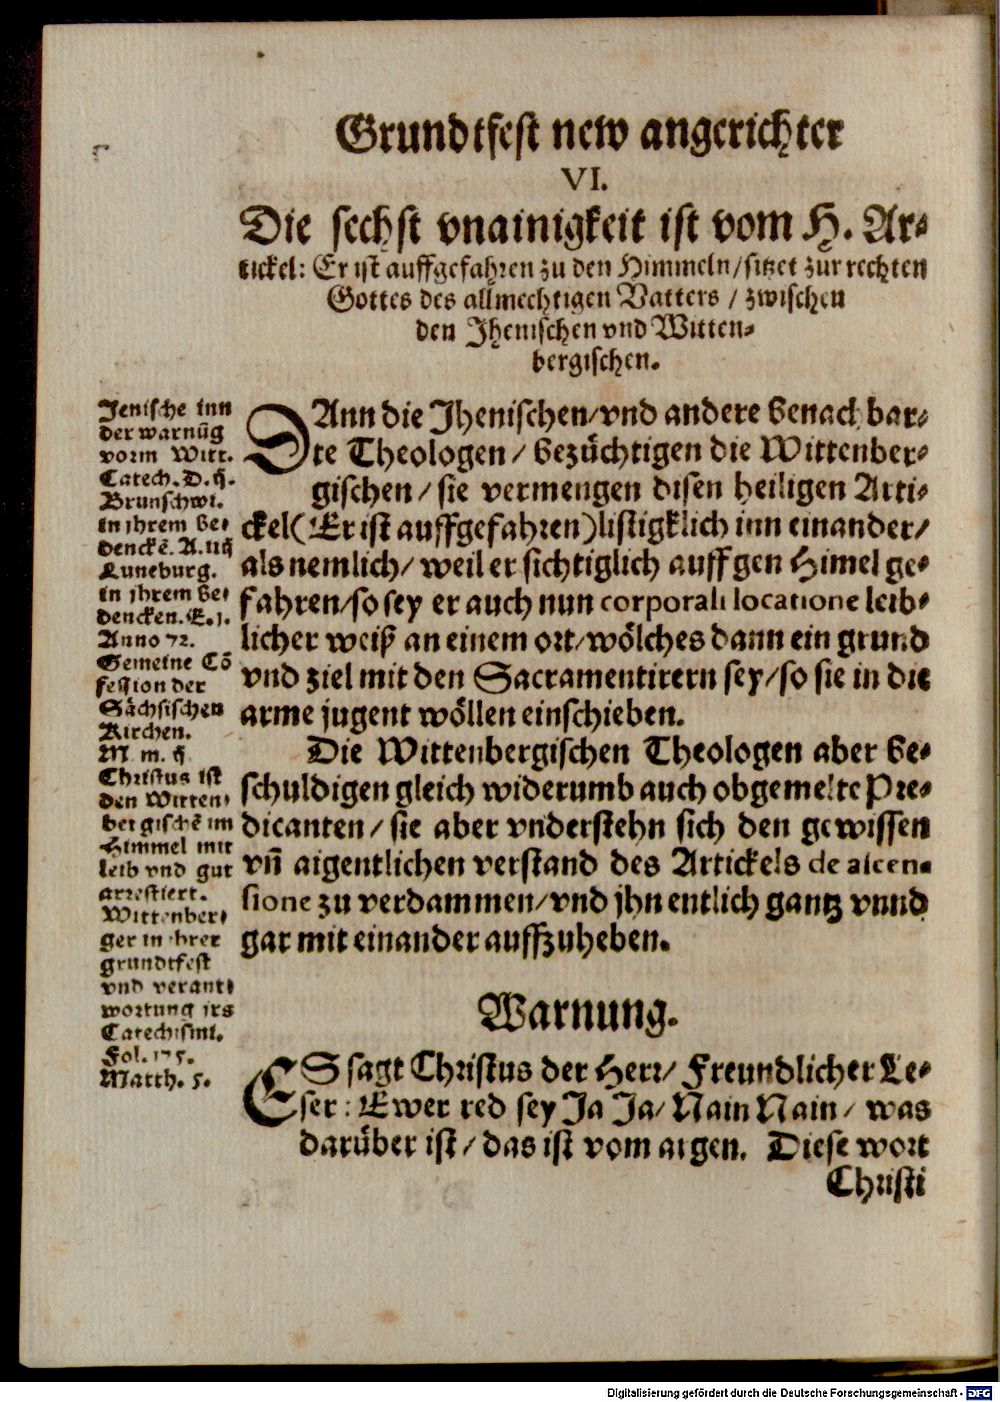 Grundtfest new angerichter
VI.
Die sechst vnainigkeit ist vom H. Ar-
tickel: Er ist auffgefahren zu den Himmeln/ sitzet zur rechten
Gottes des allmechtigen Vatters / zwischen
den Jhenischen vnd Witten-
bergischen.
Jenische inn
der warnũg
vorm Witt.
Catech. D. ij.
Brunschwi.
in jhrem be-
denckẽ. A. iiij
Luneburg.
in jhrem be-
dencken. E. j.
Anno 72.
Gemeine Cõ
fession der
Sächsischen
Kirchen.
M m. ij
Christus ist
den Witten-
bergischẽ im
Himmel mit
leib vnd gut
arrestiert.
Wittenber-
ger in jhrer
grundtfest
vnd verant-
wortung jrs
Catechismi.
Fol. 175.
Matth. 5.
DAnn die Jhenischen/ vnd andere benachbar-
te Theologen / bezüchtigen die Wittenber-
gischen / sie vermengen disen heiligen Arti-
ckel (Er ist auffgefahren) listigklich inn einander/
als nemlich/ weil er sichtiglich auff gen Himel ge-
fahren/ so sey er auch nun corporali locatione leib-
licher weiß an einem ort/ wölches dann ein grund
vnd ziel mit den Sacramentirern sey/ so sie in die
arme jugent wöllen einschieben.
Die Wittenbergischen Theologen aber be-
schuldigen gleich widerumb auch obgemelte Pre-
dicanten / sie aber vnderstehn sich den gewissen
vñ aigentlichen verstand des Artickels de ascen-
sione zu verdammen/ vnd jhn entlich gantz vnnd
gar mit einander auffzuheben.
Warnung.
ES sagt Christus der Herr/ Freundlicher Le-
ser : Ewer red sey Ja Ja/ Nain Nain / was
darüber ist / das ist vom argen. Diese wort
Christi
Digitalisierung gefördert durch die Deutsche Forschungsgemeinschaft - DFG